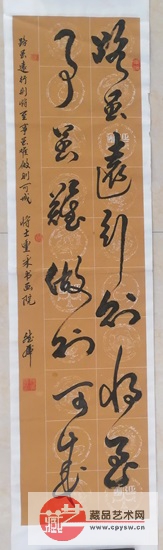 路虽远行则将至
事虽难做则可成
路虽远行则将至事虽难做则可成 将士重来书画院
德华
藏品艺术网
www.cpysw.cn